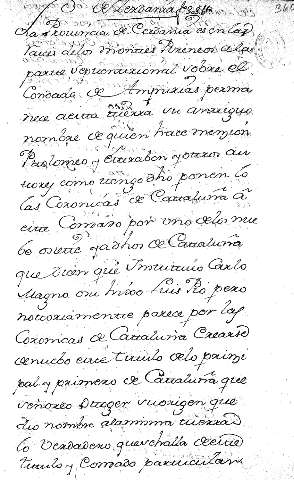 De Cerdania
La Prouincia de Cerdania es en las
faices de los montes Pirineos de la
parte septentrional sobre el
Condado de Ampurias perma
nece a esta tierra su antiguo
nombre de quien hace mencion
Ptolomeo y estrabon y otros au
tores como tengo dho ponen lo
las Coronicas de Cattaluña a
este Condado por uno de los nue
be q̃ dhos de Cattaluña
que dicen que Instituio Carlo
Magno o su hixo Luis Pio pero
nottoriamente parece por las
Coronicas de Cattaluña Crearse
de nuebo este titulo de lo prinzi
pal y primero de Cattaluña que
señoreo su origen que
dio nombre a la misma tierra
lo Verdadero que se halla de este
titulo y Condado particular